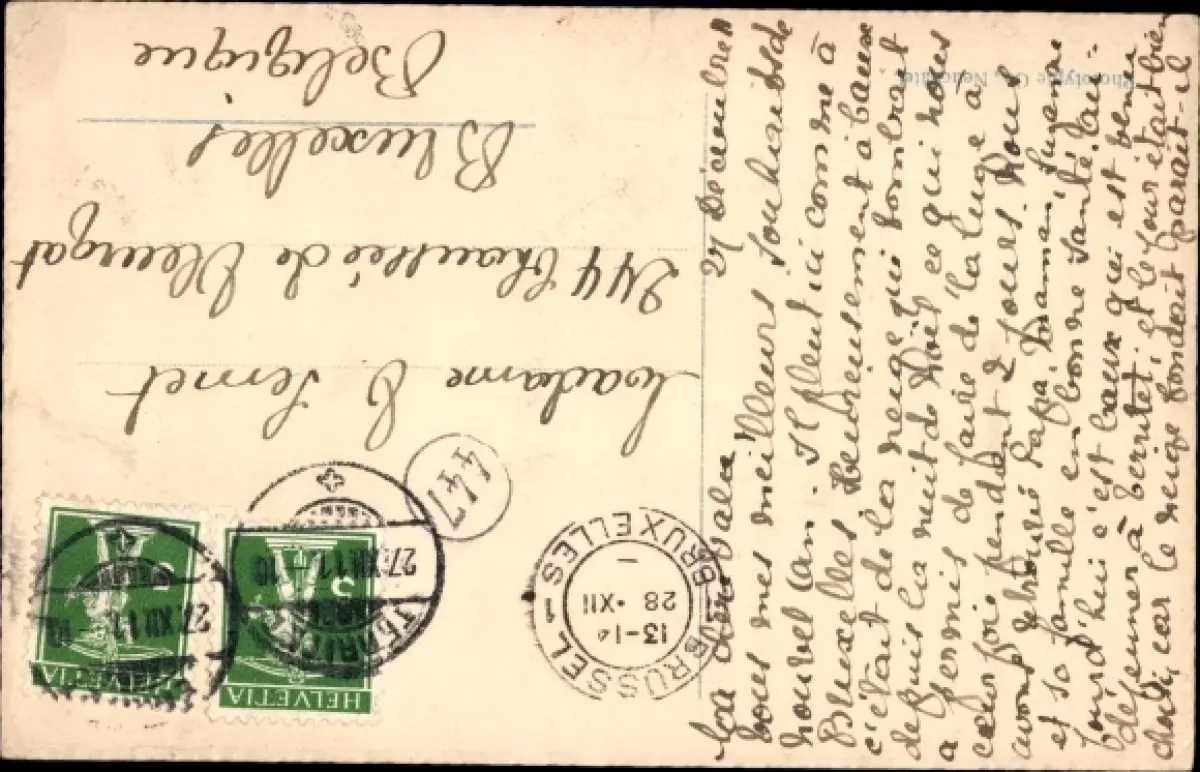 27 Décembre 11
Ma chère
tous mes meilleurs souhaits de
nouvel an. Il pleut ici comme à
Bruxelles heureusement à Caux
c'était de la neige qui tombait
depuis la nuit de Noël ce qui nous
a permis de faire de la luge à
cœur joie pendant 2 jours. Nous
avons retrouvé Papa, Maman,
et sa famille en bonne santé. Au-
jourd'hui c'est Caux qui est venu
déjeuner à Territet, et le four était bien
choisi, car la neige fondait paraît-il
Madame E Sermet
244 Chaussée de Vleurgat
Bruxelles
Belgique
447
Phototypie Co., Neuchâtel
TERRITET
27.XII.11.-10
HELVETIA
5
27.XII.11.-10
HELVETIA
5
BRUXELLES 1
BRUSSEL 1
28 • XII